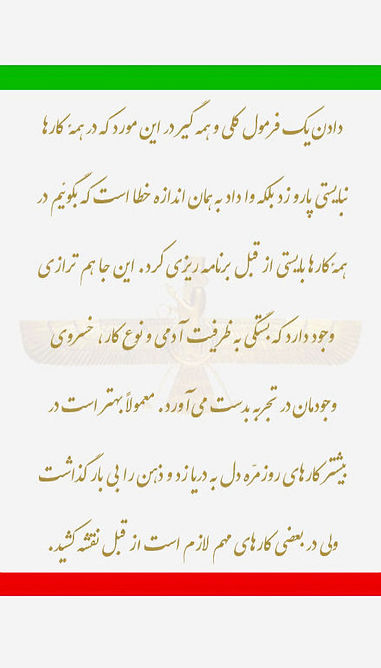 دادن یک فرمول کلی و همه گیر در این مورد که در همهٔ کارها
نبایستی پارو زد بلکه وا داد به همان اندازه خطا است که بگوئیم در
همهٔ کارها بایستی از قبل برنامه ریزی کرد. این جا هم ترازی
وجود دارد که بستگی به ظرفیت آدمی و نوع کار، خسروی
وجودمان در تجربه بدست می‌آورد. معمولاً بهتر است در
بیشتر کارهای روزمرّه دل به دریا زد و ذهن را بی بار گذاشت
ولی در بعضی کارهای مهم لازم است از قبل نقشه کشید.